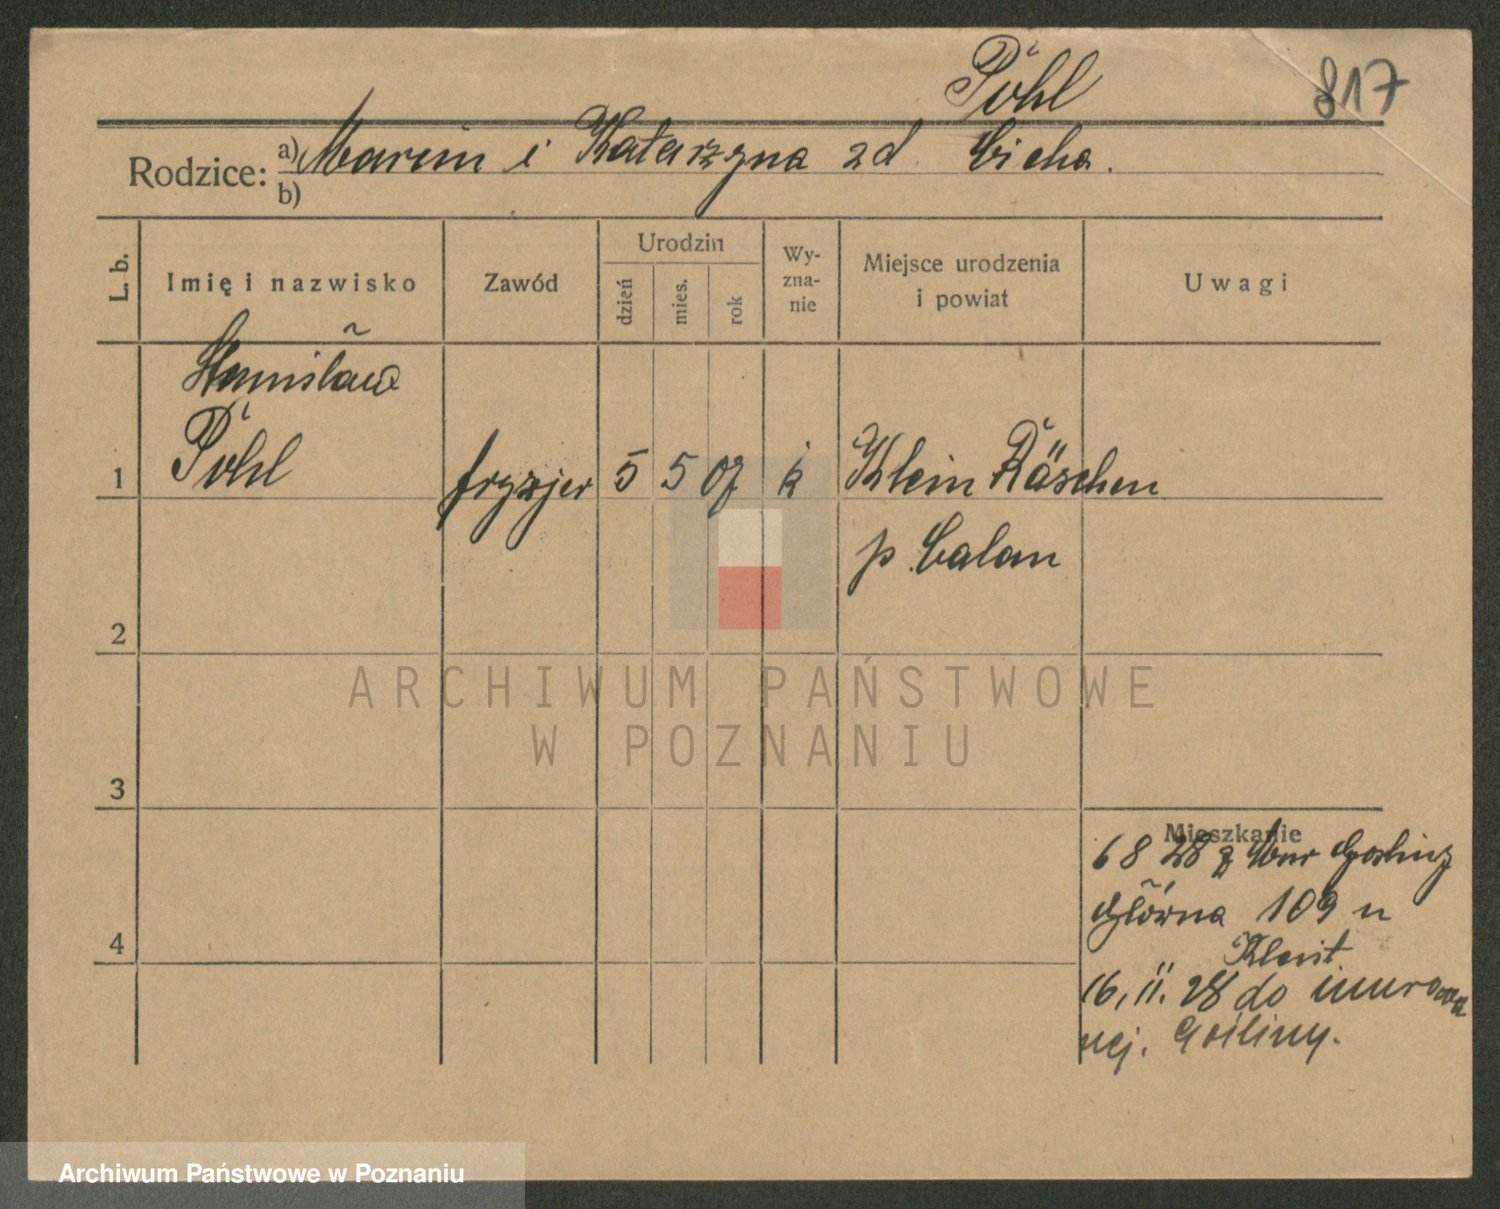 Pohl
817
Rodzice: a) Marcin i Katarzyna zd Cicha.
b)
L. b.
Imię i nazwisko
Zawód
Urodzin
dzień
mies.
rok
Wy-
zna-
nie
Miejsce urodzenia
i powiat
Uwagi
Stanisław
Pohl
1
fryzjer
5
5
07
k
Klein Räschen
p. Calau
2
3
4
Mieszkanie
6 8 28 z Mur Gosliny
Główna 109 u
16. 11. 28 do murowa
nej. Gośliny.
ARCHIWUM PAŃSTWOWE
W POZNANIU
Archiwum Państwowe w Poznaniu